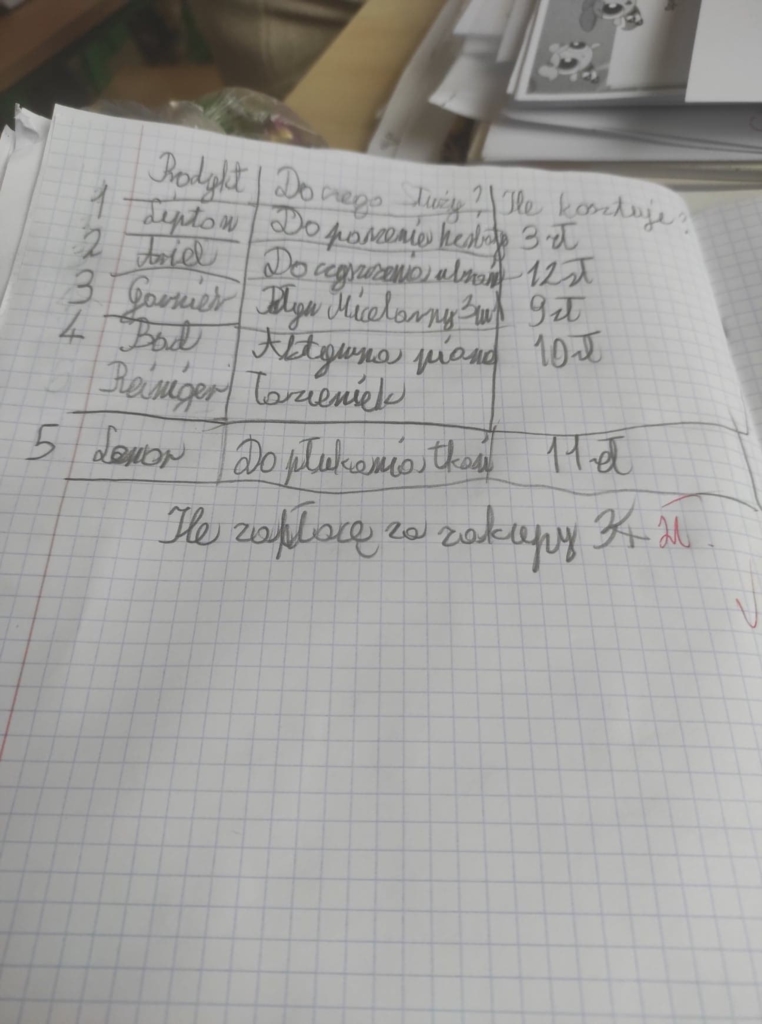 Produkt Do czego służy? Ile kosztuje?
1 Lipton Do parzenia herbaty 3 zł
2 Ariel Do czyszczenia ubrań 12 zł
3 Garnier Płyn Micelarny 3w1 9 zł
4 Bad Aktywna piana 10 zł
Reiniger łazienek
5 Lenor Do płukania tkani 11 zł
Ile zapłacę za zakupy zł.